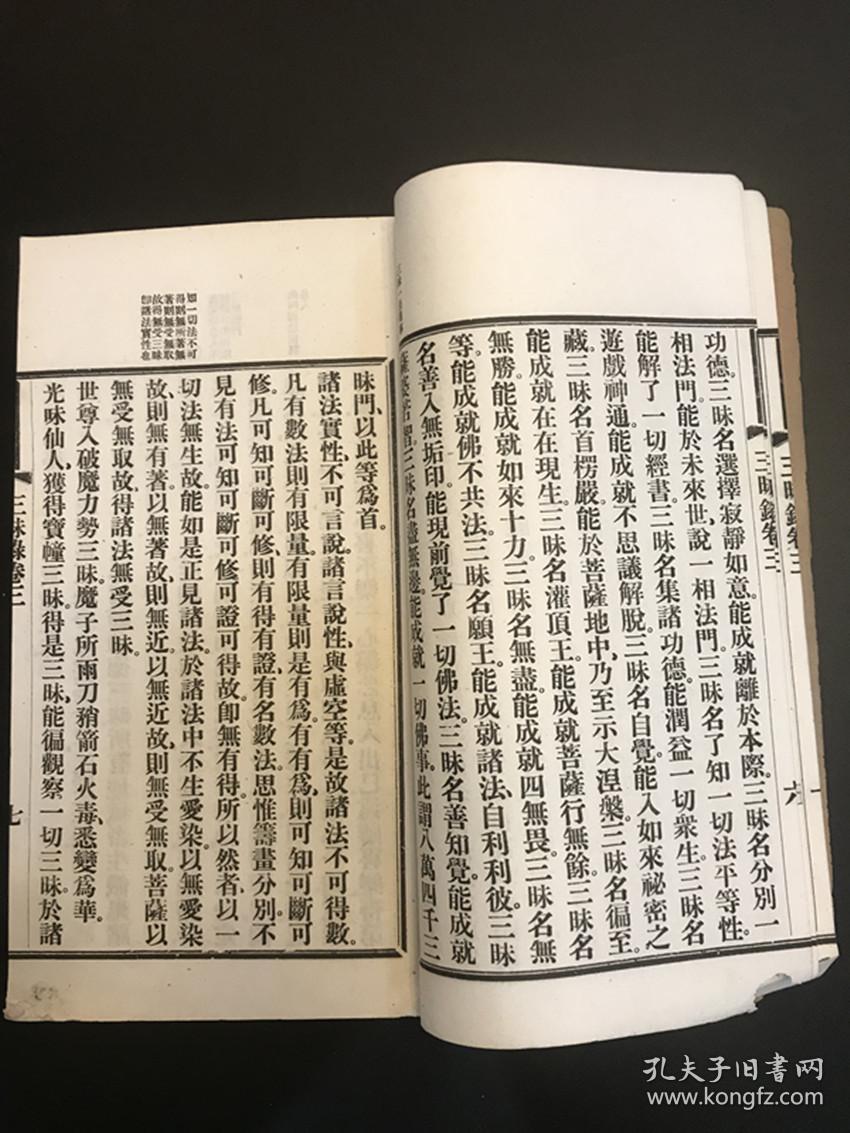 三昧錄卷三
三昧錄卷三
六
功德。三昧名選擇寂靜如意。能成就離於本際。三昧名分別一
相法門。能於未來世說一相法門。三昧名了知一切法平等性。
能解了一切經書。三昧名集諸功德。能潤益一切衆生。三昧名
遊戲神通。能成就不思議解脫。三昧名自覺。能入如來祕密之
藏。三昧名首楞嚴。能於菩薩地中乃至示大涅槃。三昧名徧至。
能成就在在現生。三昧名灌頂王。能成就菩薩行無餘。三昧名
無勝。能成就如來十力。三昧名無盡。能成就四無畏。三昧名無
等。能成就佛不共法。三昧名願王。能成就諸法自利利彼。三昧
名善入無垢印。能現前覺了一切佛法。三昧名善知覺。能成就
三昧名盡無邊。能成就一切佛事。此謂八萬四千三
昧門、以此等爲首。
諸法實性、不可言說。諸言說性、與虛空等。是故諸法不可得數。
凡有數法則有限量。有限量則是有爲。有有爲、則可知可斷可
修。凡可知可斷可修、則有得有證。有名數法思惟籌畫分別。不
見有法可知可斷可修可證可得故。卽無有得。所以然者、以一
切法無生故。能如是正見諸法、於諸法中不生愛染。以無愛染
故、則無有著。以無著故、則無近。以無近故、則無受無取。菩薩以
無受無取故、得諸法無受三昧。
世尊入破魔力勢三昧。魔子所雨刀矟箭石火毒、悉變爲華。
光味仙人、獲得寶幢三昧。得是三昧、能徧觀察一切三昧。於諸
如一切法不可
得則無所著無
著則無受無取
故得無受三昧
卽諸法實性也
三昧錄卷三
七
孔夫子旧书网
www.kongfz.com